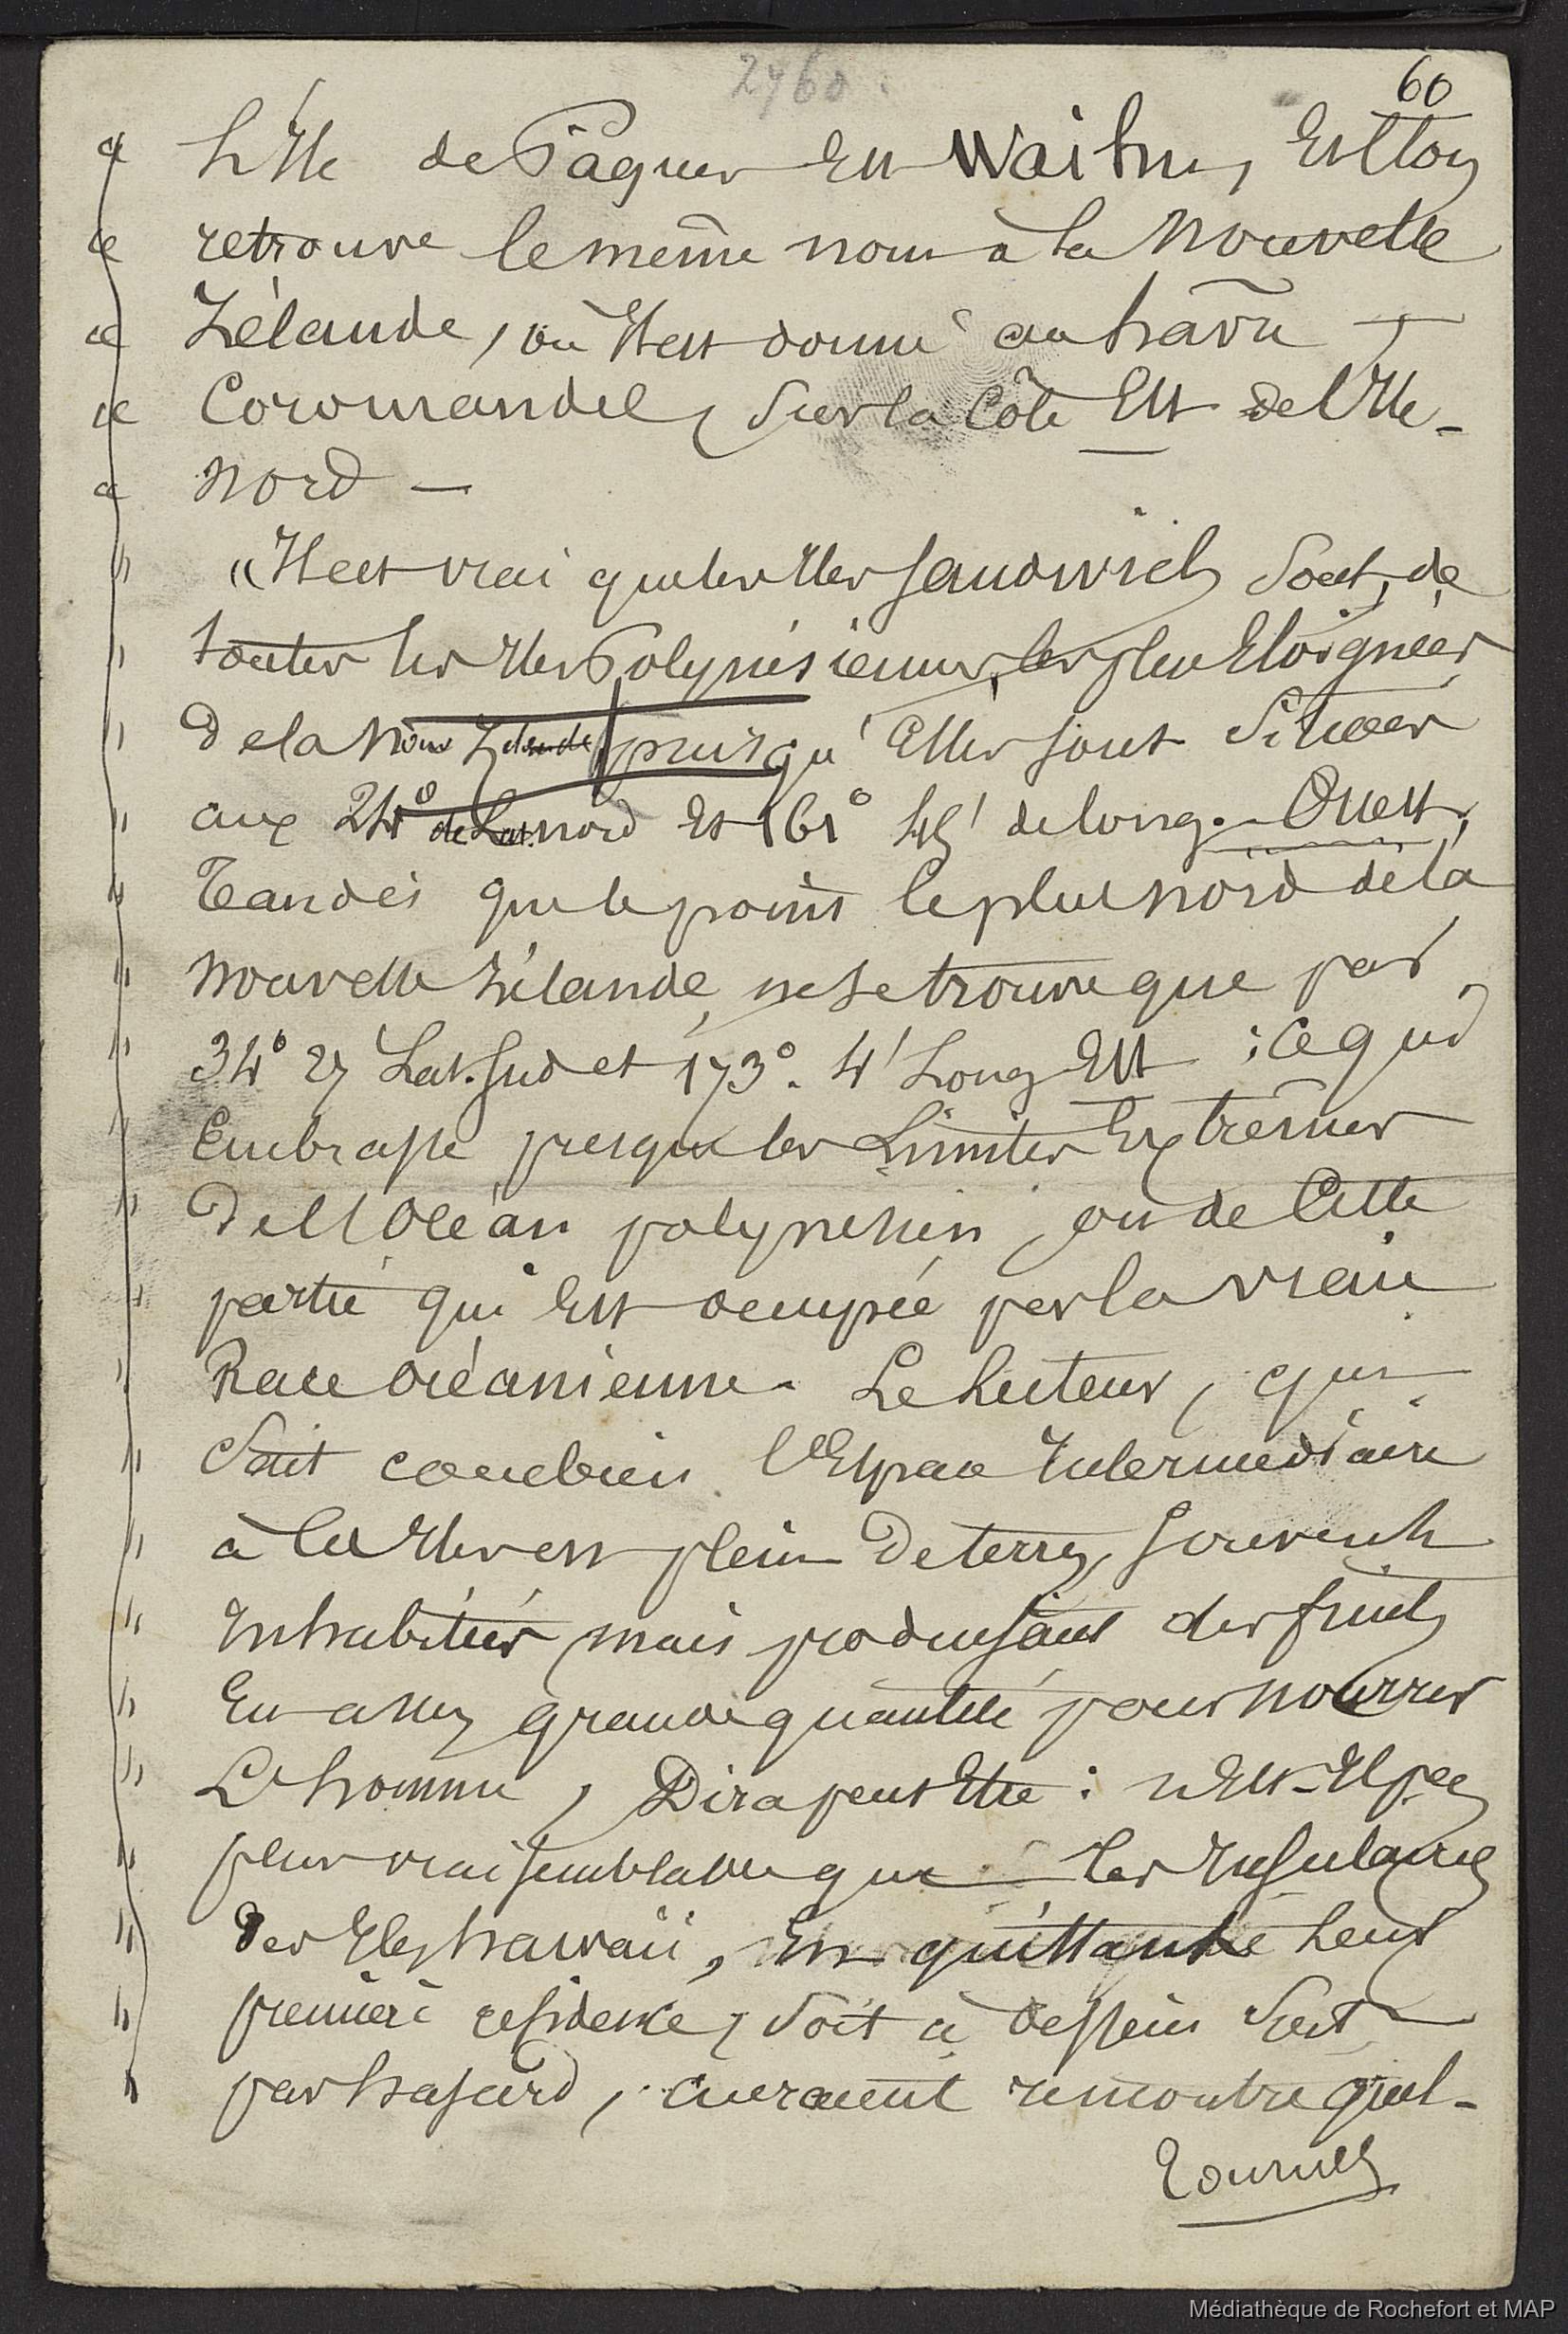 2460.
60
L'Ile de Pâques est Waihu, Et l'on
retrouve le même nom à la Nouvelle
Zélande, où Il est donné au havre
Coromandel, sur la Côte Est de l'Ile-
nord —
"Il est vrai que les Iles Sandwich sont, de
toutes les Iles Polynésiennes, les plus Eloignées
de la Nouv Zélande puisqu'Elles sont Situées
aux 24° de Lat. nord Et 161° 45' de long. Ouest,
Tandis que le point le plus nord de la
Nouvelle Zélande, ne se trouve que par
34° 27 Lat. Sud et 173°. 4' Long Est : ce qui
Embrasse presque les Limites Extrêmes
De l'Océan polynésien, ou de Cette
partie qui Est occupée par la vraie
Race Océanienne. Le Lecteur, qui
Sait combien l'Espace Intermédiaire
à ces Iles est plein De terres, Souvent
Inhabitées, mais produisant des fruits
En assez grande quantité pour nourrir
L'homme, Dira peut Etre : n'Est-Il pas
plus vraisemblable que les Insulaires
des Iles hawaii, En quittant leur
première résidence, soit à dessein Soit
par hasard, auraient rencontré quel-
Tournez
Médiathèque de Rochefort et MAP